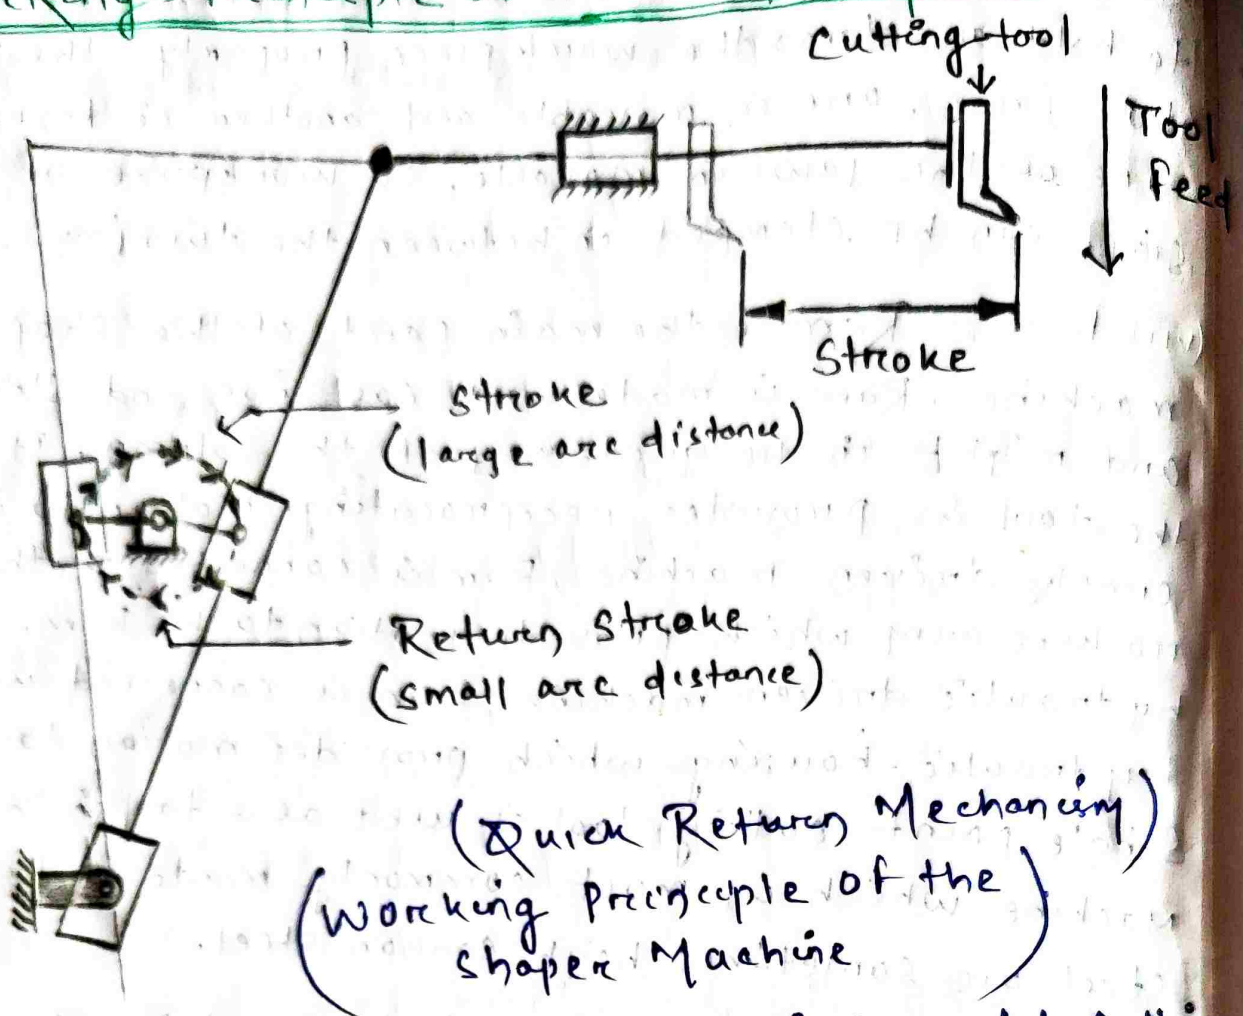 Cutting tool
Tool
Feed
Stroke
Stroke
(large arc distance)
Return Stroke
(small arc distance)
(Quick Return Mechanism)
(Working Principle of the
Shaper Machine)